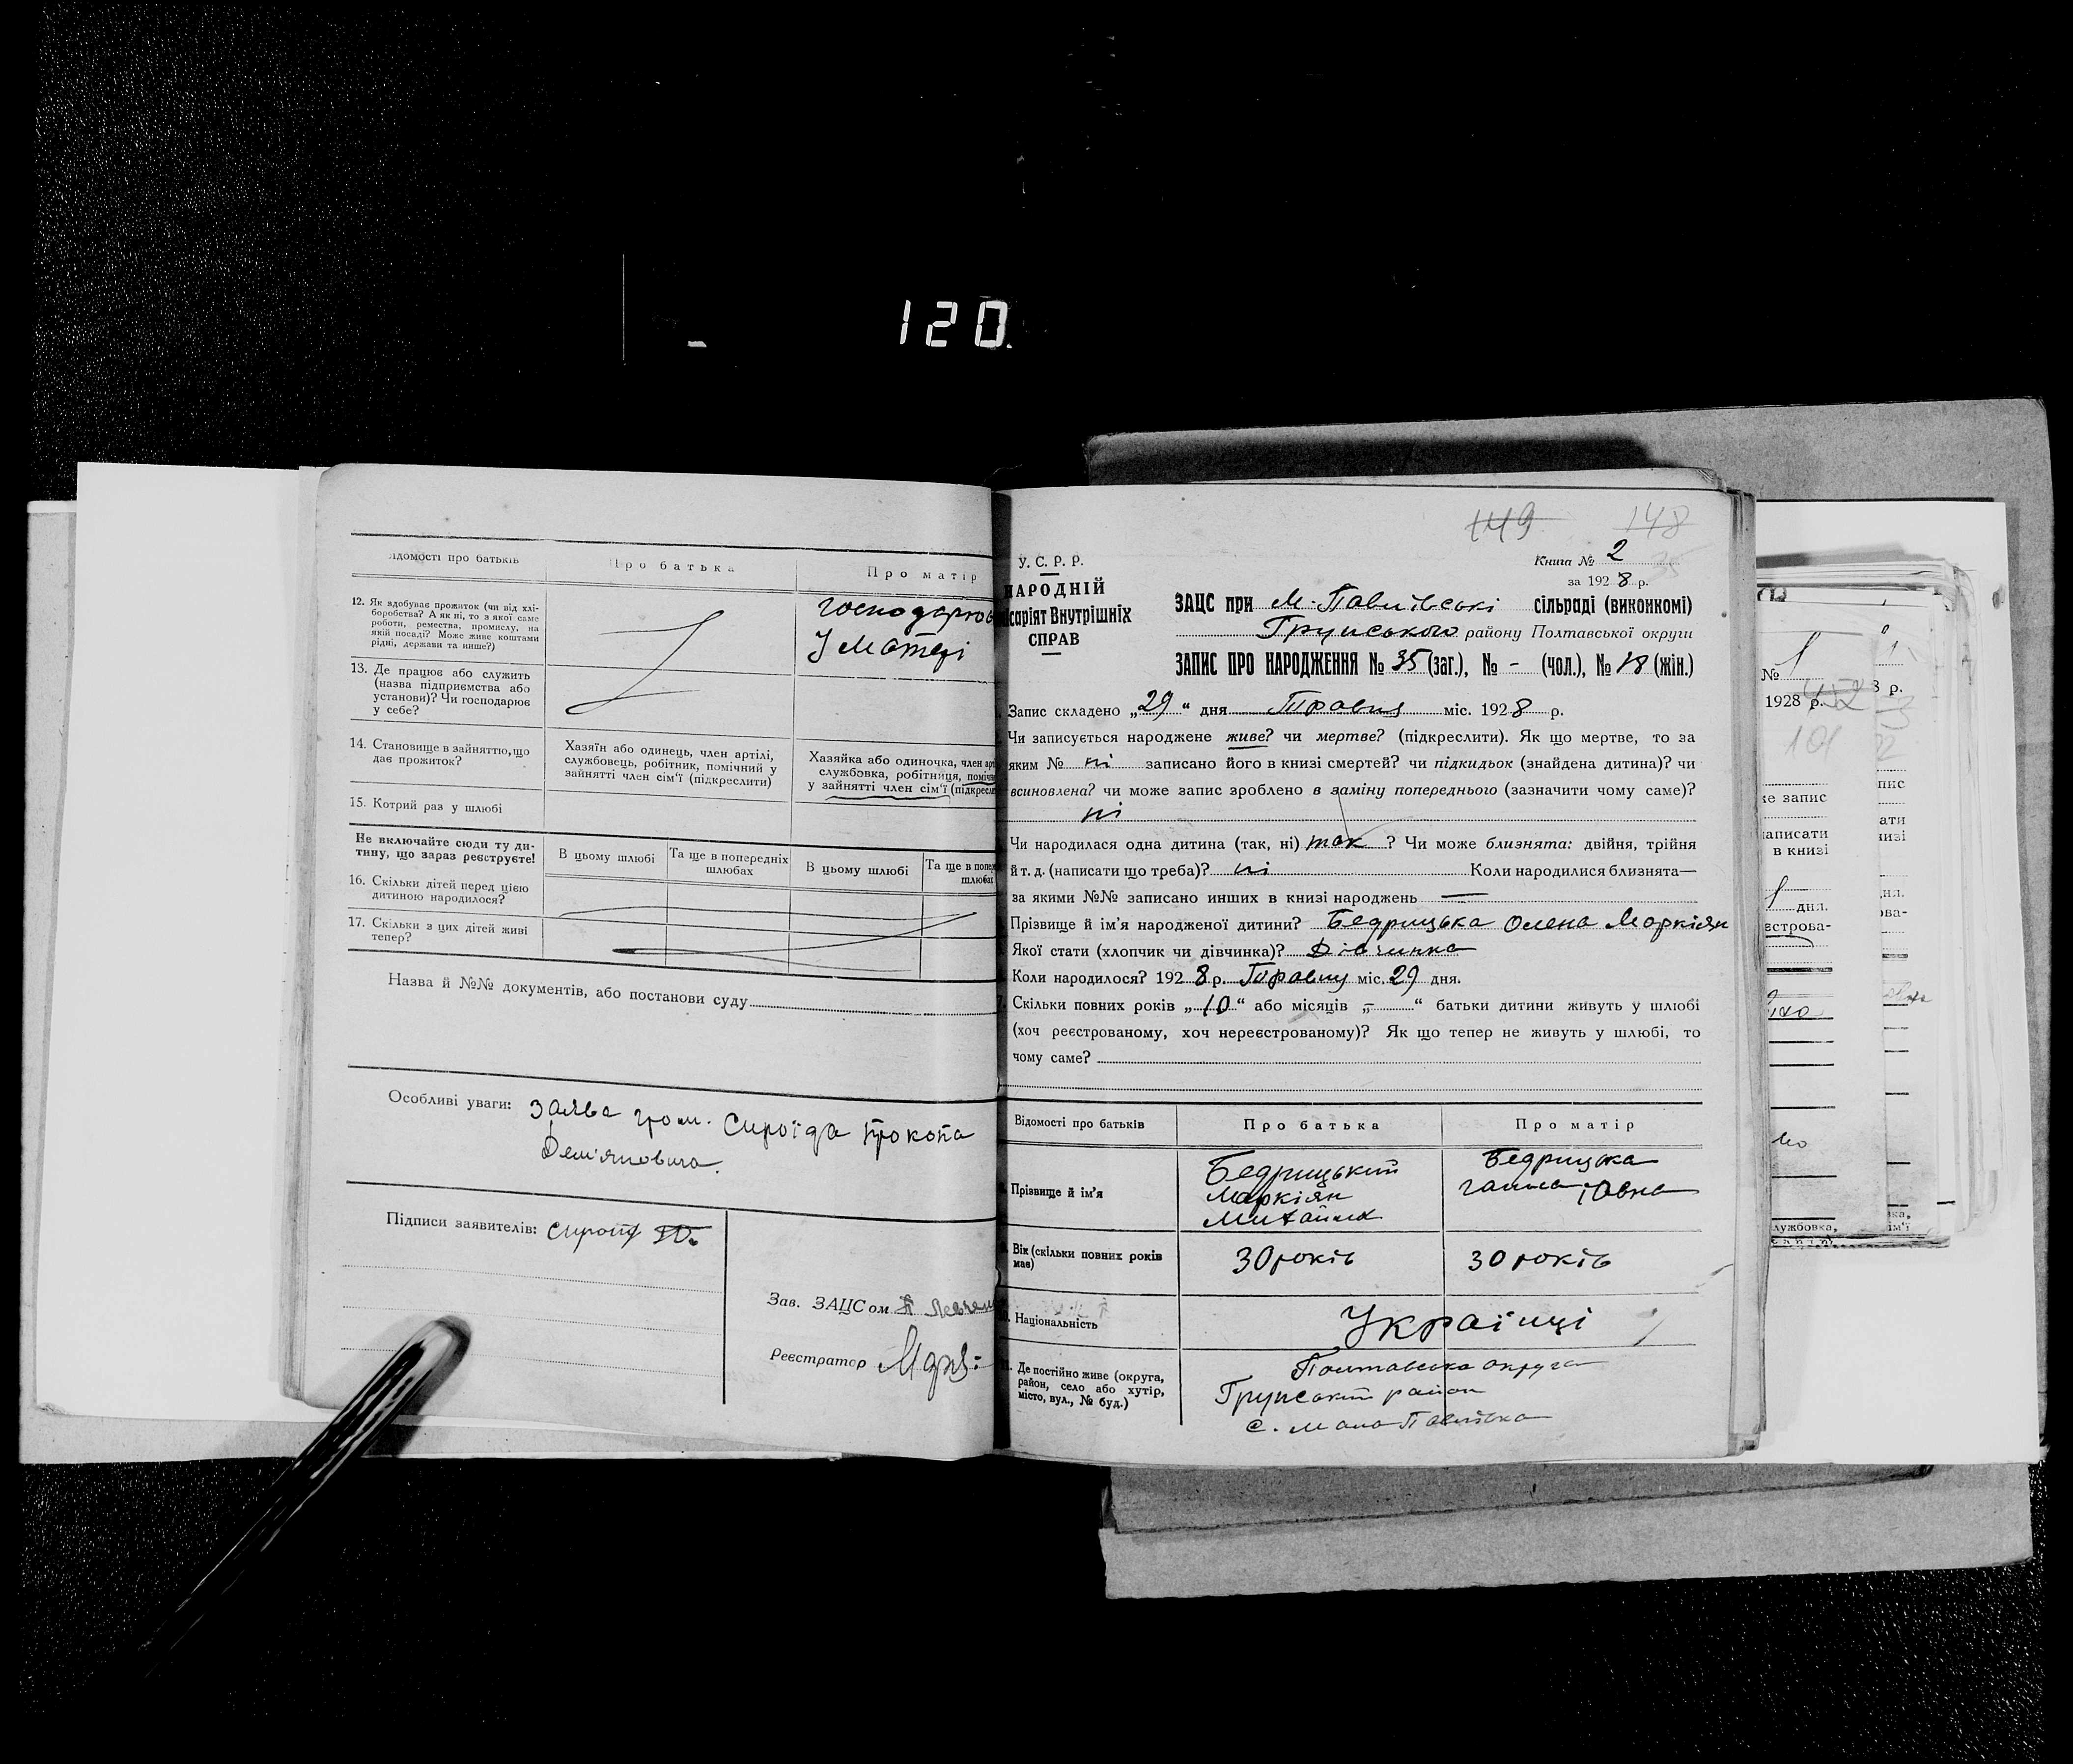 120.
Відомості про батьків
Про батька
Про матір
12. Як здобуває прожиток (чи від хлі-
боробства? А як ні, то з якої саме
роботи, ремества, промислу, на
якій посаді? Може живе коштами
рідні, держави та инше?)
У матері
13. Де працює або служить
(назва підприємства або
установи)? Чи господарює
у себе?
14. Становище в зайняттю, що
дає прожиток?
Хазяїн або одинець, член артілі,
службовець, робітник, помічний у
зайнятті член сім'ї (підкреслити)
Хазяйка або одиночка, член арт
службовка, робітниця, помічн
у зайнятті член сім'ї (підкресли
15. Котрий раз у шлюбі
Не включайте сюди ту ди-
тину, що зараз реєструєте!
В цьому шлюбі
Та ще в попередніх
шлюбах
В цьому шлюбі
Та ще в попер
шлюбах
16. Скільки дітей перед цією
дитиною народилося?
17. Скільки з цих дітей живі
тепер?
Назва й №№ документів, або постанови суду
Особливі уваги: Заява гром. Сироїда Прокопа
Дем'яновича.
Підписи заявителів:
Зав. ЗАЦСом
Реєстратор
149 148
У.С.Р.Р.
НАРОДНІЙ
саріят Внутрішніх
СПРАВ
Книга № 2
за 1928 р.
ЗАЦС при М-Павлівські сільраді (виконкомі)
Грунського району Полтавської округи
ЗАПИС ПРО НАРОДЖЕННЯ № 35 (заг.), № - (чол.), № 18 (жін.)
Запис складено „29" дня Травня міс. 1928 р.
Чи записується народжене живе? чи мертве? (підкреслити). Як що мертве, то за
яким № ні записано його в книзі смертей? чи підкидьок (знайдена дитина)? чи
всиновлена? чи може запис зроблено в заміну попереднього (зазначити чому саме)?
ні
Чи народилася одна дитина (так, ні) так ? Чи може близнята: двійня, трійня
й т. д. (написати що треба)? ні Коли народилися близнята—
за якими №№ записано инших в книзі народжень —
Прізвище й ім'я народженої дитини? Бедрицька Олена Маркіян
Якої стати (хлопчик чи дівчинка)? Дівчинка
Коли народилося? 1928 р. Травня міс. 29 дня.
Скільки повних років „10" або місяців „-" батьки дитини живуть у шлюбі
(хоч реєстрованому, хоч нереєстрованому)? Як що тепер не живуть у шлюбі, то
чому саме?
Відомості про батьків
Про батька
Про матір
Прізвище й ім'я
Бедрицький
Маркіян
Бедрицька
Вік (скільки повних років
має)
30 років
30 років
Національність
Українці
Де постійно живе (округа,
район, село або хутір,
місто, вул., № буд.)
Полтавська округа
Грунський район
с. Мало Павлівка
№ 1
1928 р.
8 р.
101